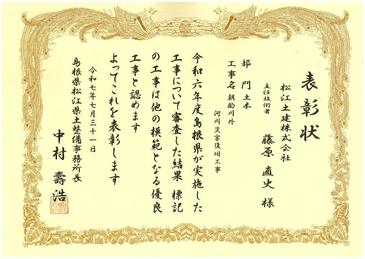 表彰状
松江土建株式会社
主任技術者
藤原 直史 様
部門 土木
工事名 朝酌川外
河川災害復旧工事
令和六年度島根県が実施した
工事について審査した結果 標記
の工事は他の模範となる優良
工事と認めます
よってこれを表彰します
令和七年七月三十一日
島根県松江県土整備事務所長
中村 壽浩